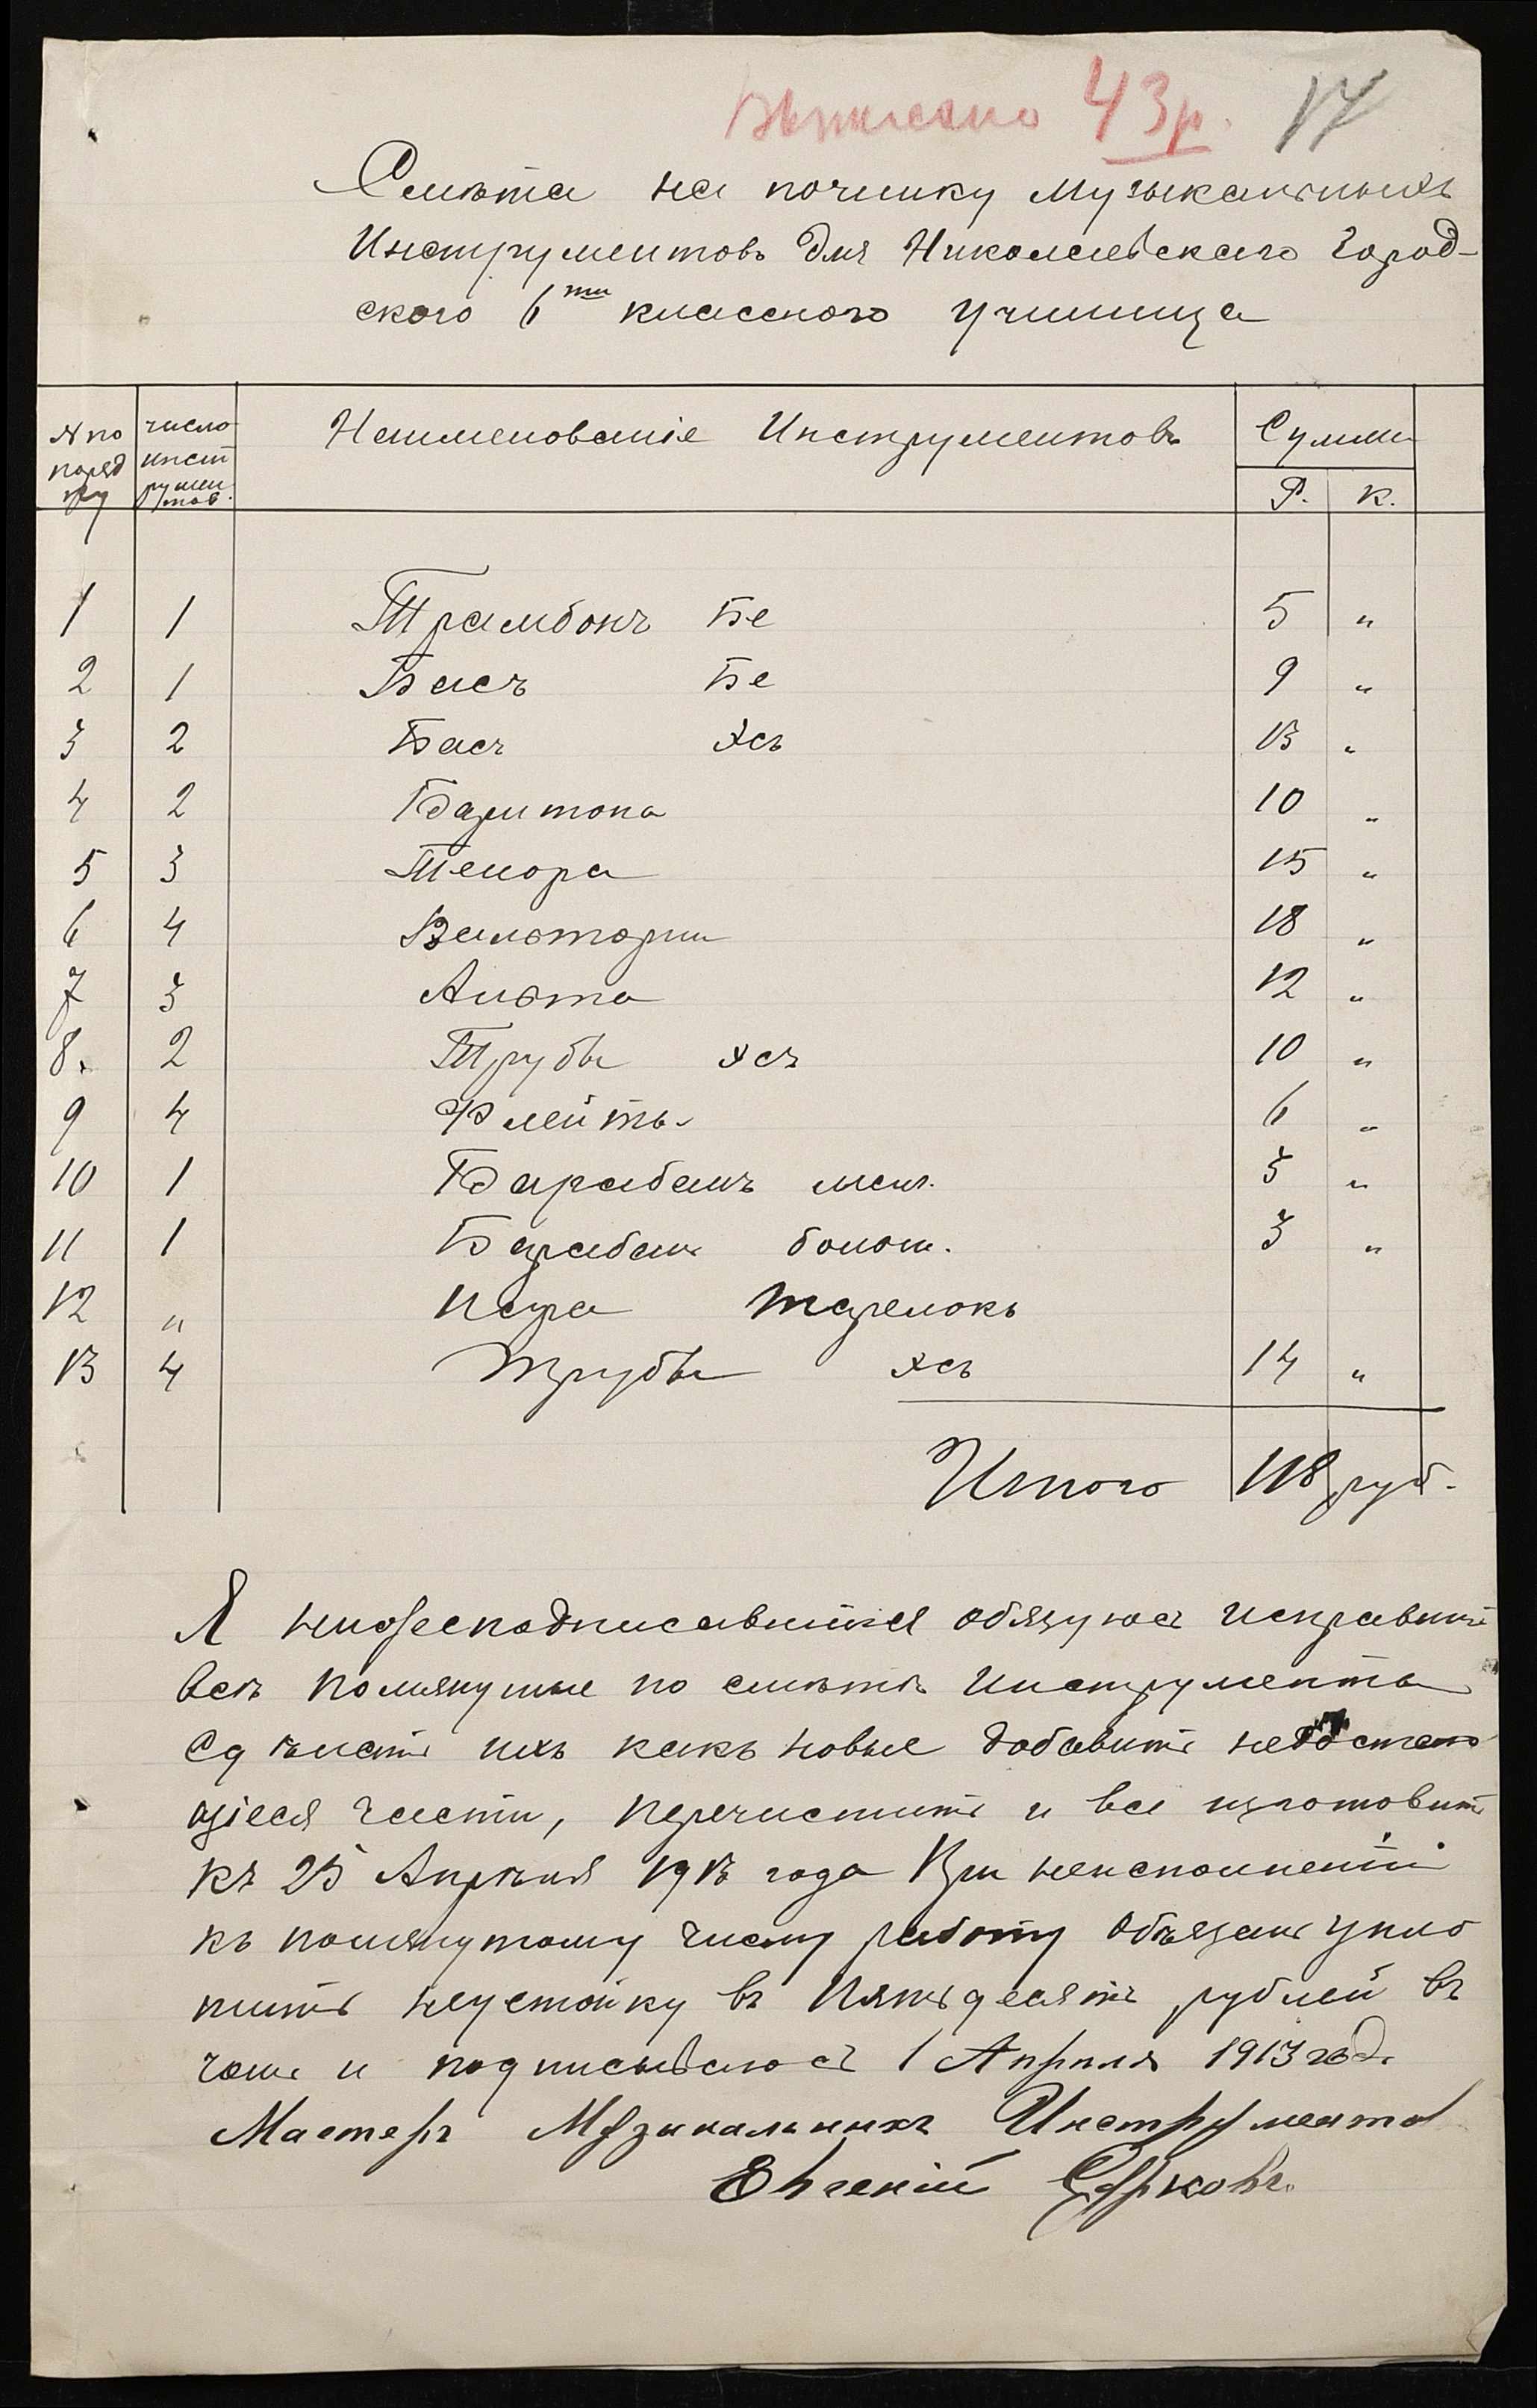 Выписано 43 р. 17
Смѣта на починку музыкальныхъ
Инструментовъ для Николаевскаго Город-
ского 6ти класснаго училища
№ по поряд ку | число инст румен тов. | Наименованіе Инструментовъ | Сумма
Р. | К.
1 1 Трамбонъ Бе 5 "
2 1 Басъ Бе 9 "
3 2 Басъ Эсъ 13 "
4 2 Баритона 10 "
5 3 Тенора 15 "
6 4 Вальторни 18 "
7 3 Альта 12 "
8. 2 Трубы Эсъ 10 "
9 4 Флейты 6 "
10 1 Барабанъ мал. 3 "
11 1 Барабанъ больш. 3 "
12 " Пара тарелокъ
13 4 Трубы Эсъ 14 "
Итого 118 руб.
Я нижеподписавшійся обязуюсь исправить
всѣ помянутые по смѣтѣ Инструменты
Сдѣлать ихъ какъ новые добавить недостаю
щіеся части, перечистить и все изготовить
къ 25 Апрѣля 1913 года При неисполненіи
къ помянутому числу работу обязанъ упло
тить неустойку въ Пятьдесятъ рублей въ
чемъ и подписываюсь 1 Апрѣля 1913 год.
Мастеръ Музыкальныхъ Инструмента
Евгеній